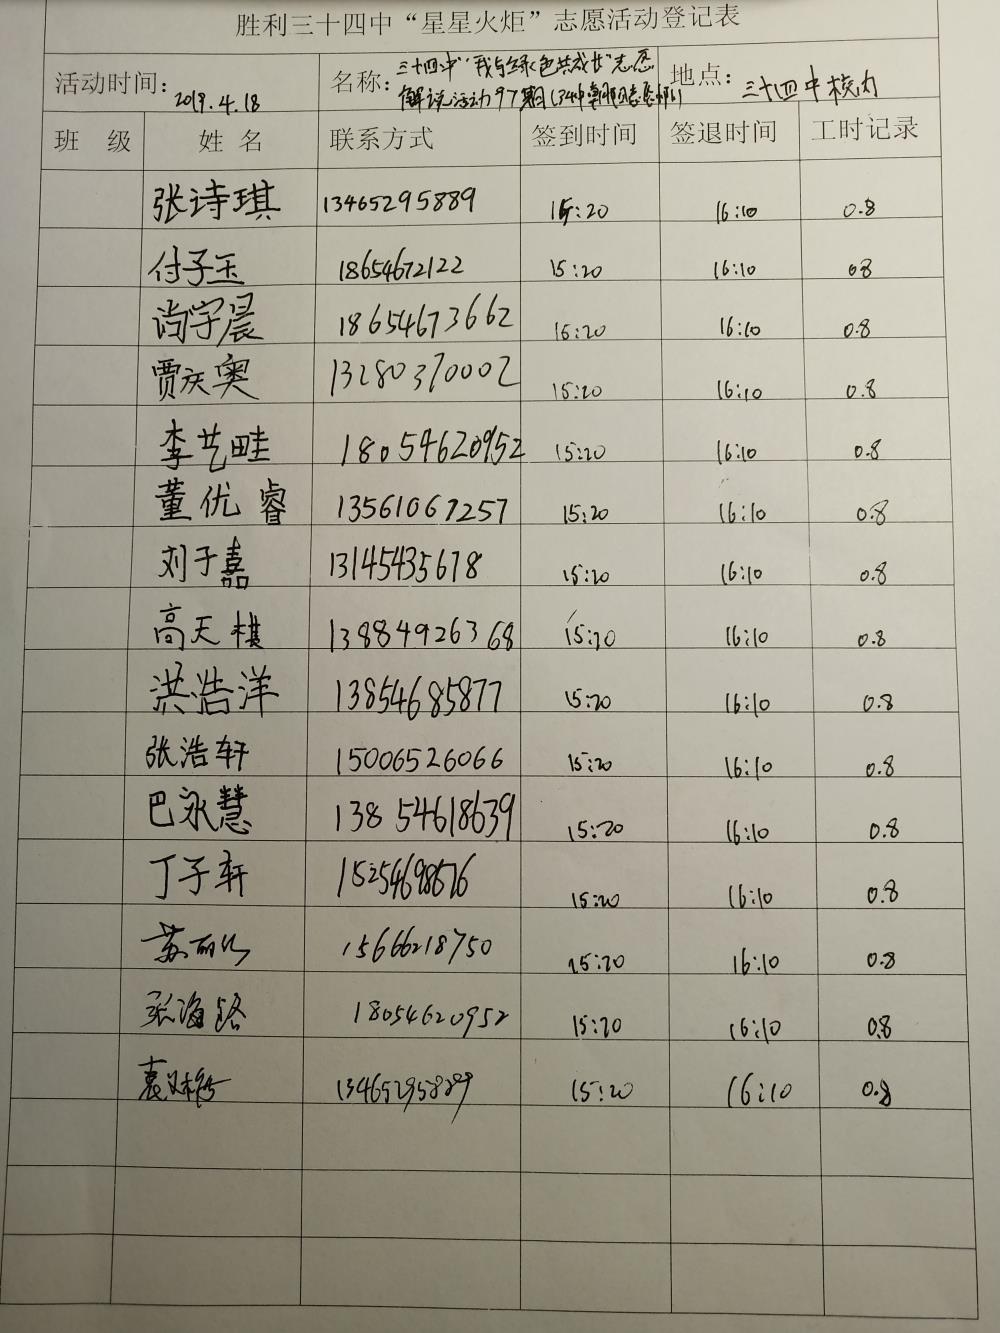 胜利三十四中“星星火炬”志愿活动登记表
活动时间: 2019.4.18 名称: 三十四中“我与绿色共成长”志愿 地点: 三十四中校内
解说活动97期(34中
班 级 姓 名 联系方式 签到时间 签退时间 工时记录
张诗琪 13465295889 15:20 16:10 0.8
付子玉 18654672122 15:20 16:10 0.8
尚宇晨 18654673662 15:20 16:10 0.8
贾庆奥 13280370002 15:20 16:10 0.8
李艺畦 18054620952 15:20 16:10 0.8
董优睿 13561067257 15:20 16:10 0.8
刘子嘉 13145435678 15:20 16:10 0.8
高天棋 13884926368 15:20 16:10 0.8
洪浩洋 13854685877 15:20 16:10 0.8
张浩轩 15006526066 15:20 16:10 0.8
巴永慧 13854618639 15:20 16:10 0.8
丁子轩 15:20 16:10 0.8
苏丽 15666218750 15:20 16:10 0.8
张海路 18054620952 15:20 16:10 0.8
袁 13465295889 15:20 16:10 0.8